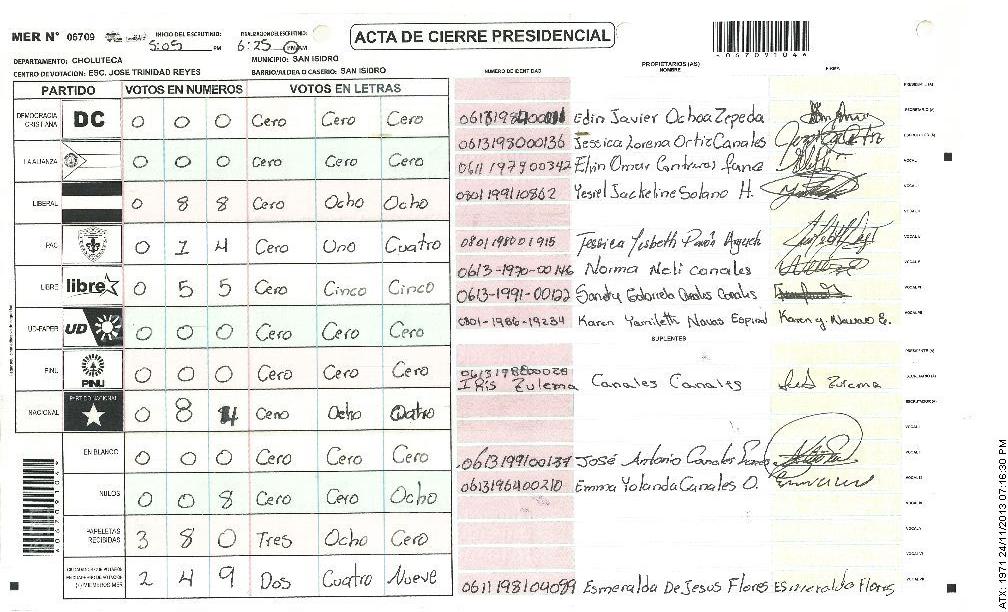 MER N° 06709 INICIO DEL ESCRUTINIO: 5:05 PM FINALIZACION DEL ESCRUTINIO: 6:25 PM AM
ACTA DE CIERRE PRESIDENCIAL
DEPARTAMENTO: CHOLUTECA MUNICIPIO: SAN ISIDRO
CENTRO DE VOTACION: ESC. JOSE TRINIDAD REYES BARRIO/ALDEA O CASERIO: SAN ISIDRO
PARTIDO VOTOS EN NUMEROS VOTOS EN LETRAS
DEMOCRACIA CRISTIANA DC 0 0 0 Cero Cero Cero
LA ALIANZA 0 0 0 Cero Cero Cero
LIBERAL 0 8 8 Cero Ocho Ocho
PAC 0 1 4 Cero Uno Cuatro
LIBRE libre 0 5 5 Cero Cinco Cinco
UD-FAPER UD 0 0 0 Cero Cero Cero
PINU PINU 0 0 0 Cero Cero Cero
NACIONAL PARTIDO NACIONAL 0 8 4 Cero Ocho Cuatro
EN BLANCO 0 0 0 Cero Cero Cero
NULOS 0 0 8 Cero Cero Ocho
PAPELETAS RECIBIDAS 3 8 0 Tres Ocho Cero
2 4 9 Dos Cuatro Nueve
NUMERO DE IDENTIDAD PROPIETARIOS (AS) NOMBRE FIRMA
Edin Javier Ochoa Zepeda
0613198000136 Jessica Lorena Ortiz Canales
0611197900342 Elvin Omar
0801199110862 Yesiel Jackeline Solano H.
0801198001915 Jessica Lisbeth
0613-1970-00146 Norma Neli Canales
0613-1991-00122 Canales Canales
0801-1986-19234 Karen Yamileth Navas Espinal Karen y. Navaro E.
SUPLENTES
Iris Zulema Canales Canales Iris Zulema
0613199100137 José Antonio Canales
0613196400210 Emma Yolanda Canales O.
0611198104089 Esmeralda De Jesus Flores Esmeralda Flores
ATX: 1971 24/11/2013 07:16:30 PM